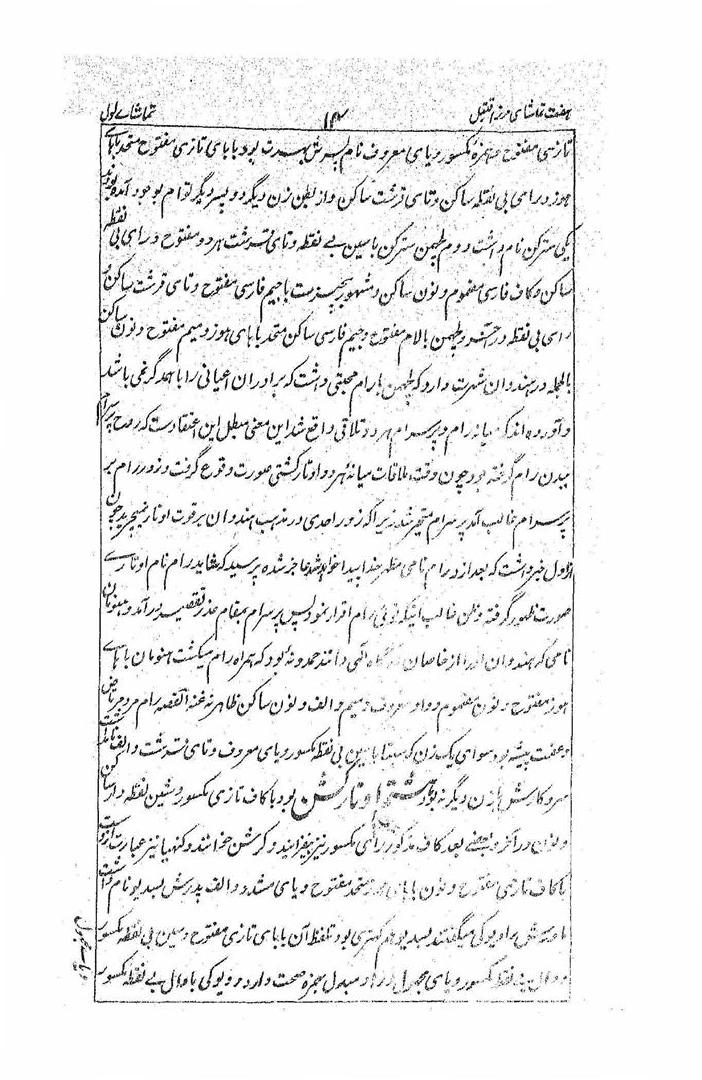 هفت تماشای مرزا قتیل ۱۴ تماشاے اول
تازی مفتوح و همزه مکسور و یای معروف نام پسرش بهرت بود بابای تازی مفتوح متحد بهای
هوز و رای بی نقطه ساکن و تای قرشت ساکن و از بطن زن دیگر دو پسر دیگر توام بوجود آمده بودند
یکی سترکن نام داشت و دوم لچهمن سترکن باسین بے نقطه و تای قرشت هر دو مفتوح و رای بی نقطه
ساکن و کاف فارسی مضموم و نون ساکن و مشهور بجیم فارسی مفتوح و تای قرشت ساکن و
رای بی نقطه در و لچهمن بالام مفتوح و جیم فارسی ساکن متحد بابای هوز و میم مفتوح و نون ساکن
بالجمله در هندوان شهرت دارد که لچهمن بارام محبتی داشت که برادران اعیانی را باهمدگر نمی باشد
و آورده اند که میانه رام و پرسرام هر دو تلاقی واقع شد این معنی مبطل این اعتقادست که روح پرسرام
ببدن رام گرفته بود چون وقت ملاقات میانهٔ هر دو اوتار کشتی صورت وقوع گرفت و زور رام بر
پرسرام غالب آمد پرسرام متحیر شد زیراکه زور احدی در مذهب هندوان بر قوت اوتار نمیچربد چون
از اول خبر داشت که بعد از و رام نامی مظهر خدا پیدا خواهد شد عاجز شده پرسید که شاید رام نام اوتارے
صورت ظهور گرفته و ظن غالب اینکه توئی رام اقرار نمود پس پرسرام بمقام عذر تقصیر در آمد و هنومان
نامی که هندوان او را از خاصان درگاه الهی دانند حمدونهٔ بود که همراه رام میگشت هنومان باہاے
هوز مفتوح و نون مضموم و واو معروف و میم و الف و نون ساکن ظاهر نه غنه القصه رام مرد مرتاض
و عفت پیشه بود سوای یک زن که سیتا باسین بی نقطه مکسور و یای معروف و تای قرشت و الف نام داشت
سر و کارش با زن دیگر نبود هشتم اوتار کشن بود با کاف تازی مکسور و شین نقطه دار ساکن
و نون در آخر و بعضے بعد کاف مذکور رای مکسور نیز بیفزایند و کرشن خوانند و کنهیا نیز عبارت از وست
با کاف تازی مفتوح و نون باہای هوز متحد مفتوح و یای مشدد و الف پدرش بسدیو نام داشت
مادرش را دیوکی میگفتند بسدیو هم کهتری بود تلفظ آن بابای تازی مفتوح و سین بی نقطه مکسور
و دال بے نقطه مکسور و یای مجهول و واو مبدل بهمزه صحت دارد و دیوکی با دال بے نقطه مکسور
و یاے مجهول